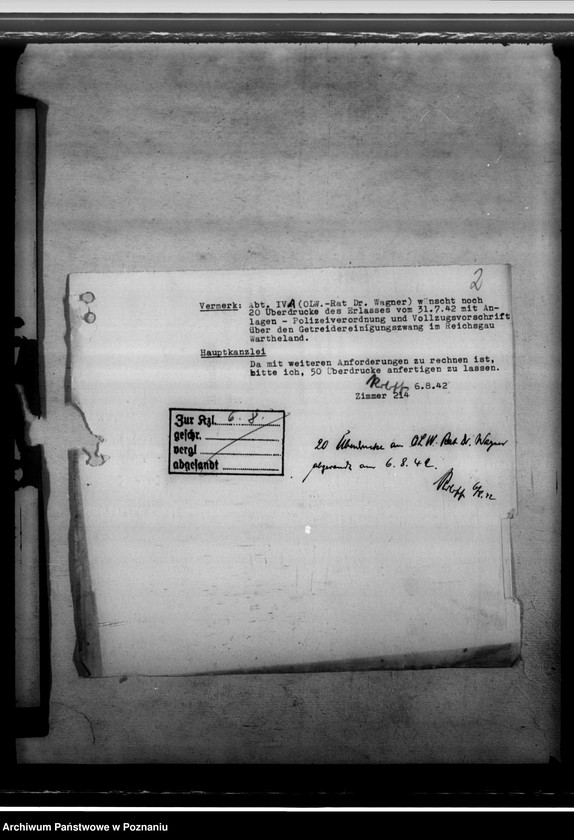 2
Vermerk: Abt. IVA (OLW.-Rat Dr. Wagner) wünscht noch
20 Überdrucke des Erlasses vom 31.7.42 mit An-
lagen - Polizeiverordnung und Vollzugsvorschrift
über den Getreidereinigungszwang im Reichsgau
Wartheland.
Hauptkanzlei
Da mit weiteren Anforderungen zu rechnen ist,
bitte ich, 50 Überdrucke anfertigen zu lassen.
6.8.42
Zimmer 214
Zur Kzl. 6. 8.
geschr.
vergl.
abgesandt
20 Überdrucke an OLW. Rat Dr. Wagner
abgesandt am 6.8.42.
Archiwum Państwowe w Poznaniu